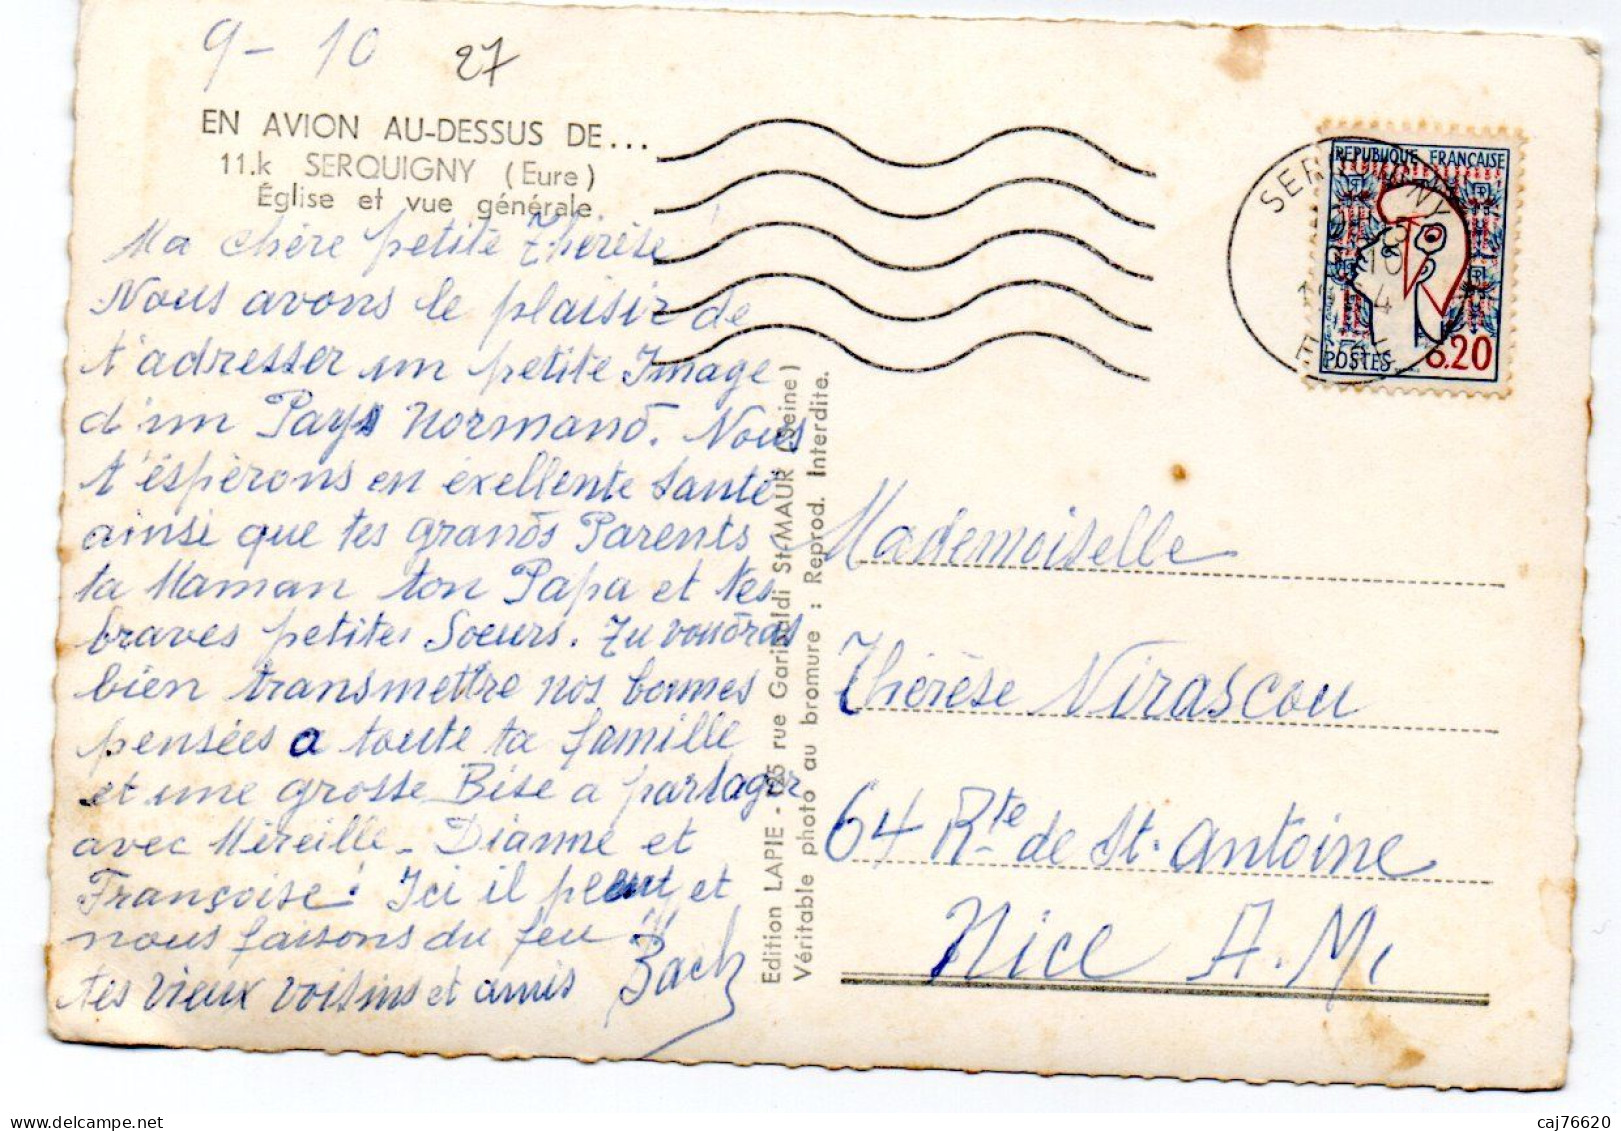 9 - 10
27
EN AVION AU-DESSUS DE...
11.k SERQUIGNY (Eure)
Église et vue générale.
Ma chère petite Thérèse
Nous avons le plaisir de
t'adresser un petite Image
d'un Pays Normand. Nous
t'éspèrons en éxellente santé
ainsi que tes grands Parents
ta Maman ton Papa et tes
braves petites Soeurs. Tu voudras
bien transmettre nos bonnes
pensées a toute ta famille
et une grosse Bise a partager
avec Mireille - Dianne et
Françoise! Ici il pleut et
nous faisons du feu!!
tes vieux voisins et amis
Edition LAPIE - 125 rue Garibaldi St-MAUR (Seine)
Véritable photo au bromure : Reprod. Interdite.
SERQUIGNY
10
1964
EURE
REPUBLIQUE FRANÇAISE
POSTES
0.20
Mademoiselle
Thérèse Nirascou
64 Rte de St. Antoine
Nice A.M.
caj76620